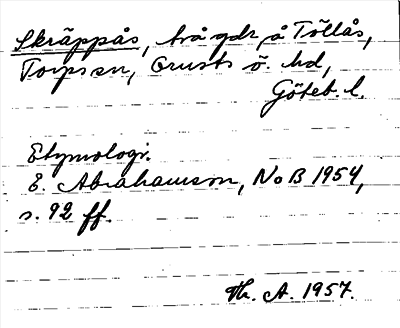 Skräppås, två gdr å Töllås,
Torps sn, Orusts ö. hd,
Göteb. l.
Etymologi.
E. Abrahamson, NoB 1954,
s. 92 ff.
Th. A. 1957.